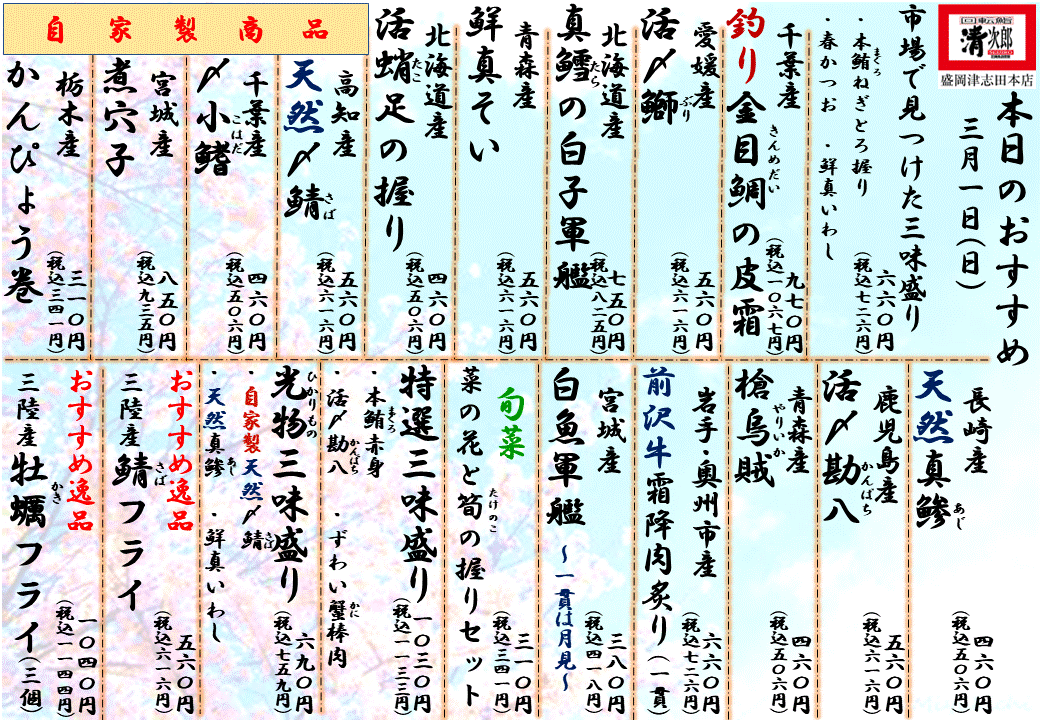 回転鮨
清次郎
SEIJIRO
盛岡津志田本店
本日のおすすめ
三月一日(日)
市場で見つけた三味盛り
・本鮪ねぎとろ握り
まぐろ
・春かつお ・鮮真いわし
六六〇円
(税込七二六円)
千葉産
釣り金目鯛の皮霜
きんめだい
九七〇円
(税込一〇六七円)
愛媛産
活〆鰤
ぶり
五六〇円
(税込六一六円)
北海道産
真鱈の白子軍艦
たら
七五〇円
(税込八二五円)
青森産
鮮真そい
五六〇円
(税込六一六円)
北海道産
活蛸足の握り
たこ
四六〇円
(税込五〇六円)
自家製商品
高知産
天然〆鯖
さば
五六〇円
(税込六一六円)
千葉産
〆小鰭
こはだ
四六〇円
(税込五〇六円)
宮城産
煮穴子
八五〇円
(税込九三五円)
栃木産
かんぴょう巻
三一〇円
(税込三四一円)
長崎産
天然真鯵
あじ
四六〇円
(税込五〇六円)
鹿児島産
活〆勘八
かんぱち
五六〇円
(税込六一六円)
青森産
槍烏賊
やりいか
四六〇円
(税込五〇六円)
岩手・奥州市産
前沢牛霜降肉炙り(一貫)
六六〇円
(税込七二六円)
宮城産
白魚軍艦 ～一貫は月見～
三八〇円
(税込四一八円)
旬菜
菜の花と筍の握りセット
たけのこ
三一〇円
(税込三四一円)
特選三味盛り
・本鮪赤身
まぐろ
・活〆勘八 ・ずわい蟹棒肉
かんぱち
かに
一〇三〇円
(税込一一三三円)
光物三味盛り
ひかりもの
・自家製天然〆鯖
さば
・天然真鯵 ・鮮真いわし
あじ
六九〇円
(税込七五九円)
おすすめ逸品
三陸産鯖フライ
さば
五六〇円
(税込六一六円)
おすすめ逸品
三陸産牡蠣フライ(三個)
かき
一〇四〇円
(税込一一四四円)